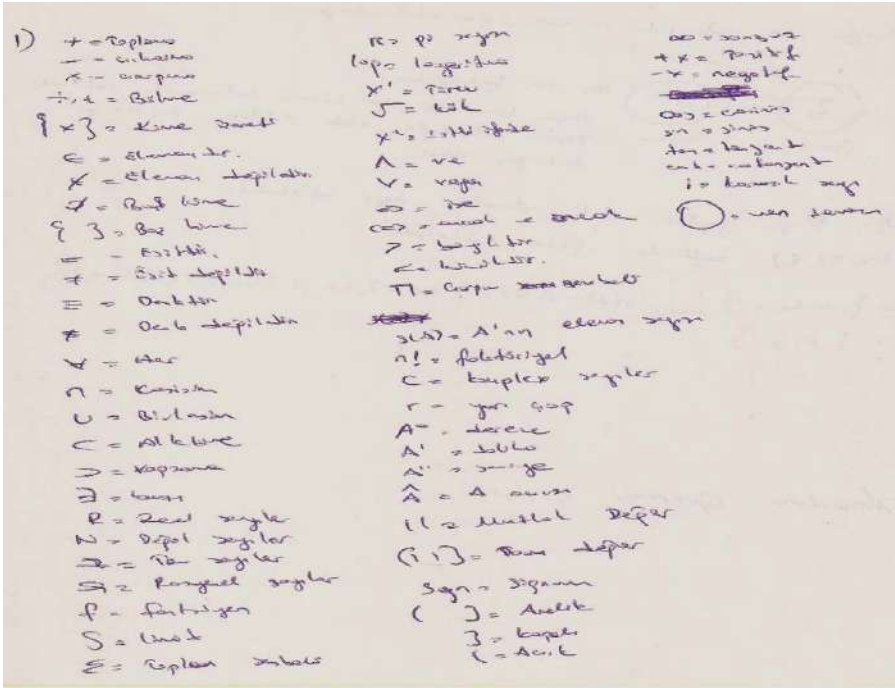 1) + = Toplama
- = çıkarma
× = çarpma
÷, : = Bölme
{x} = Küme işareti
∈ = Elemanıdır.
∉ = Eleman değildir.
∅ = Boş küme
{ } = Boş küme
= = Eşittir.
≠ = Eşit değildir
≡ = Denktir
≢ = Denk değildir
∀ = Her
∩ = Kesişim
∪ = Birleşim
⊂ = Alt küme
⊃ = Kapsama
∃ = bazı
R = Reel sayılar
N = Doğal sayılar
Z = Tam sayılar
Q = Rasyonel sayılar
f = fonksiyon
S = Limit
Σ = Toplam sembolü
π = pi sayısı
log = logaritma
x' = Türev
√ = kök
x² = üslü ifade
∧ = ve
∨ = veya
⇒ = ise
⇔ = ancak ve ancak
> = büyüktür
< = küçüktür.
Π = Çarpım sembolü
s(A) = A'nın eleman sayısı
n! = faktöriyel
C = kompleks sayılar
r = yarı çap
A° = derece
A' = dakika
A'' = saniye
Â = A açısı
| | = Mutlak Değer
[| |] = Tam değer
Sgn = Signum
( ] = Aralık
] = kapalı
( = Açık
∞ = sonsuz
+x = Pozitif
-x = negatif
cos = cosinüs
sin = sinüs
tan = tanjant
cot = cotanjant
i = karmaşık sayı